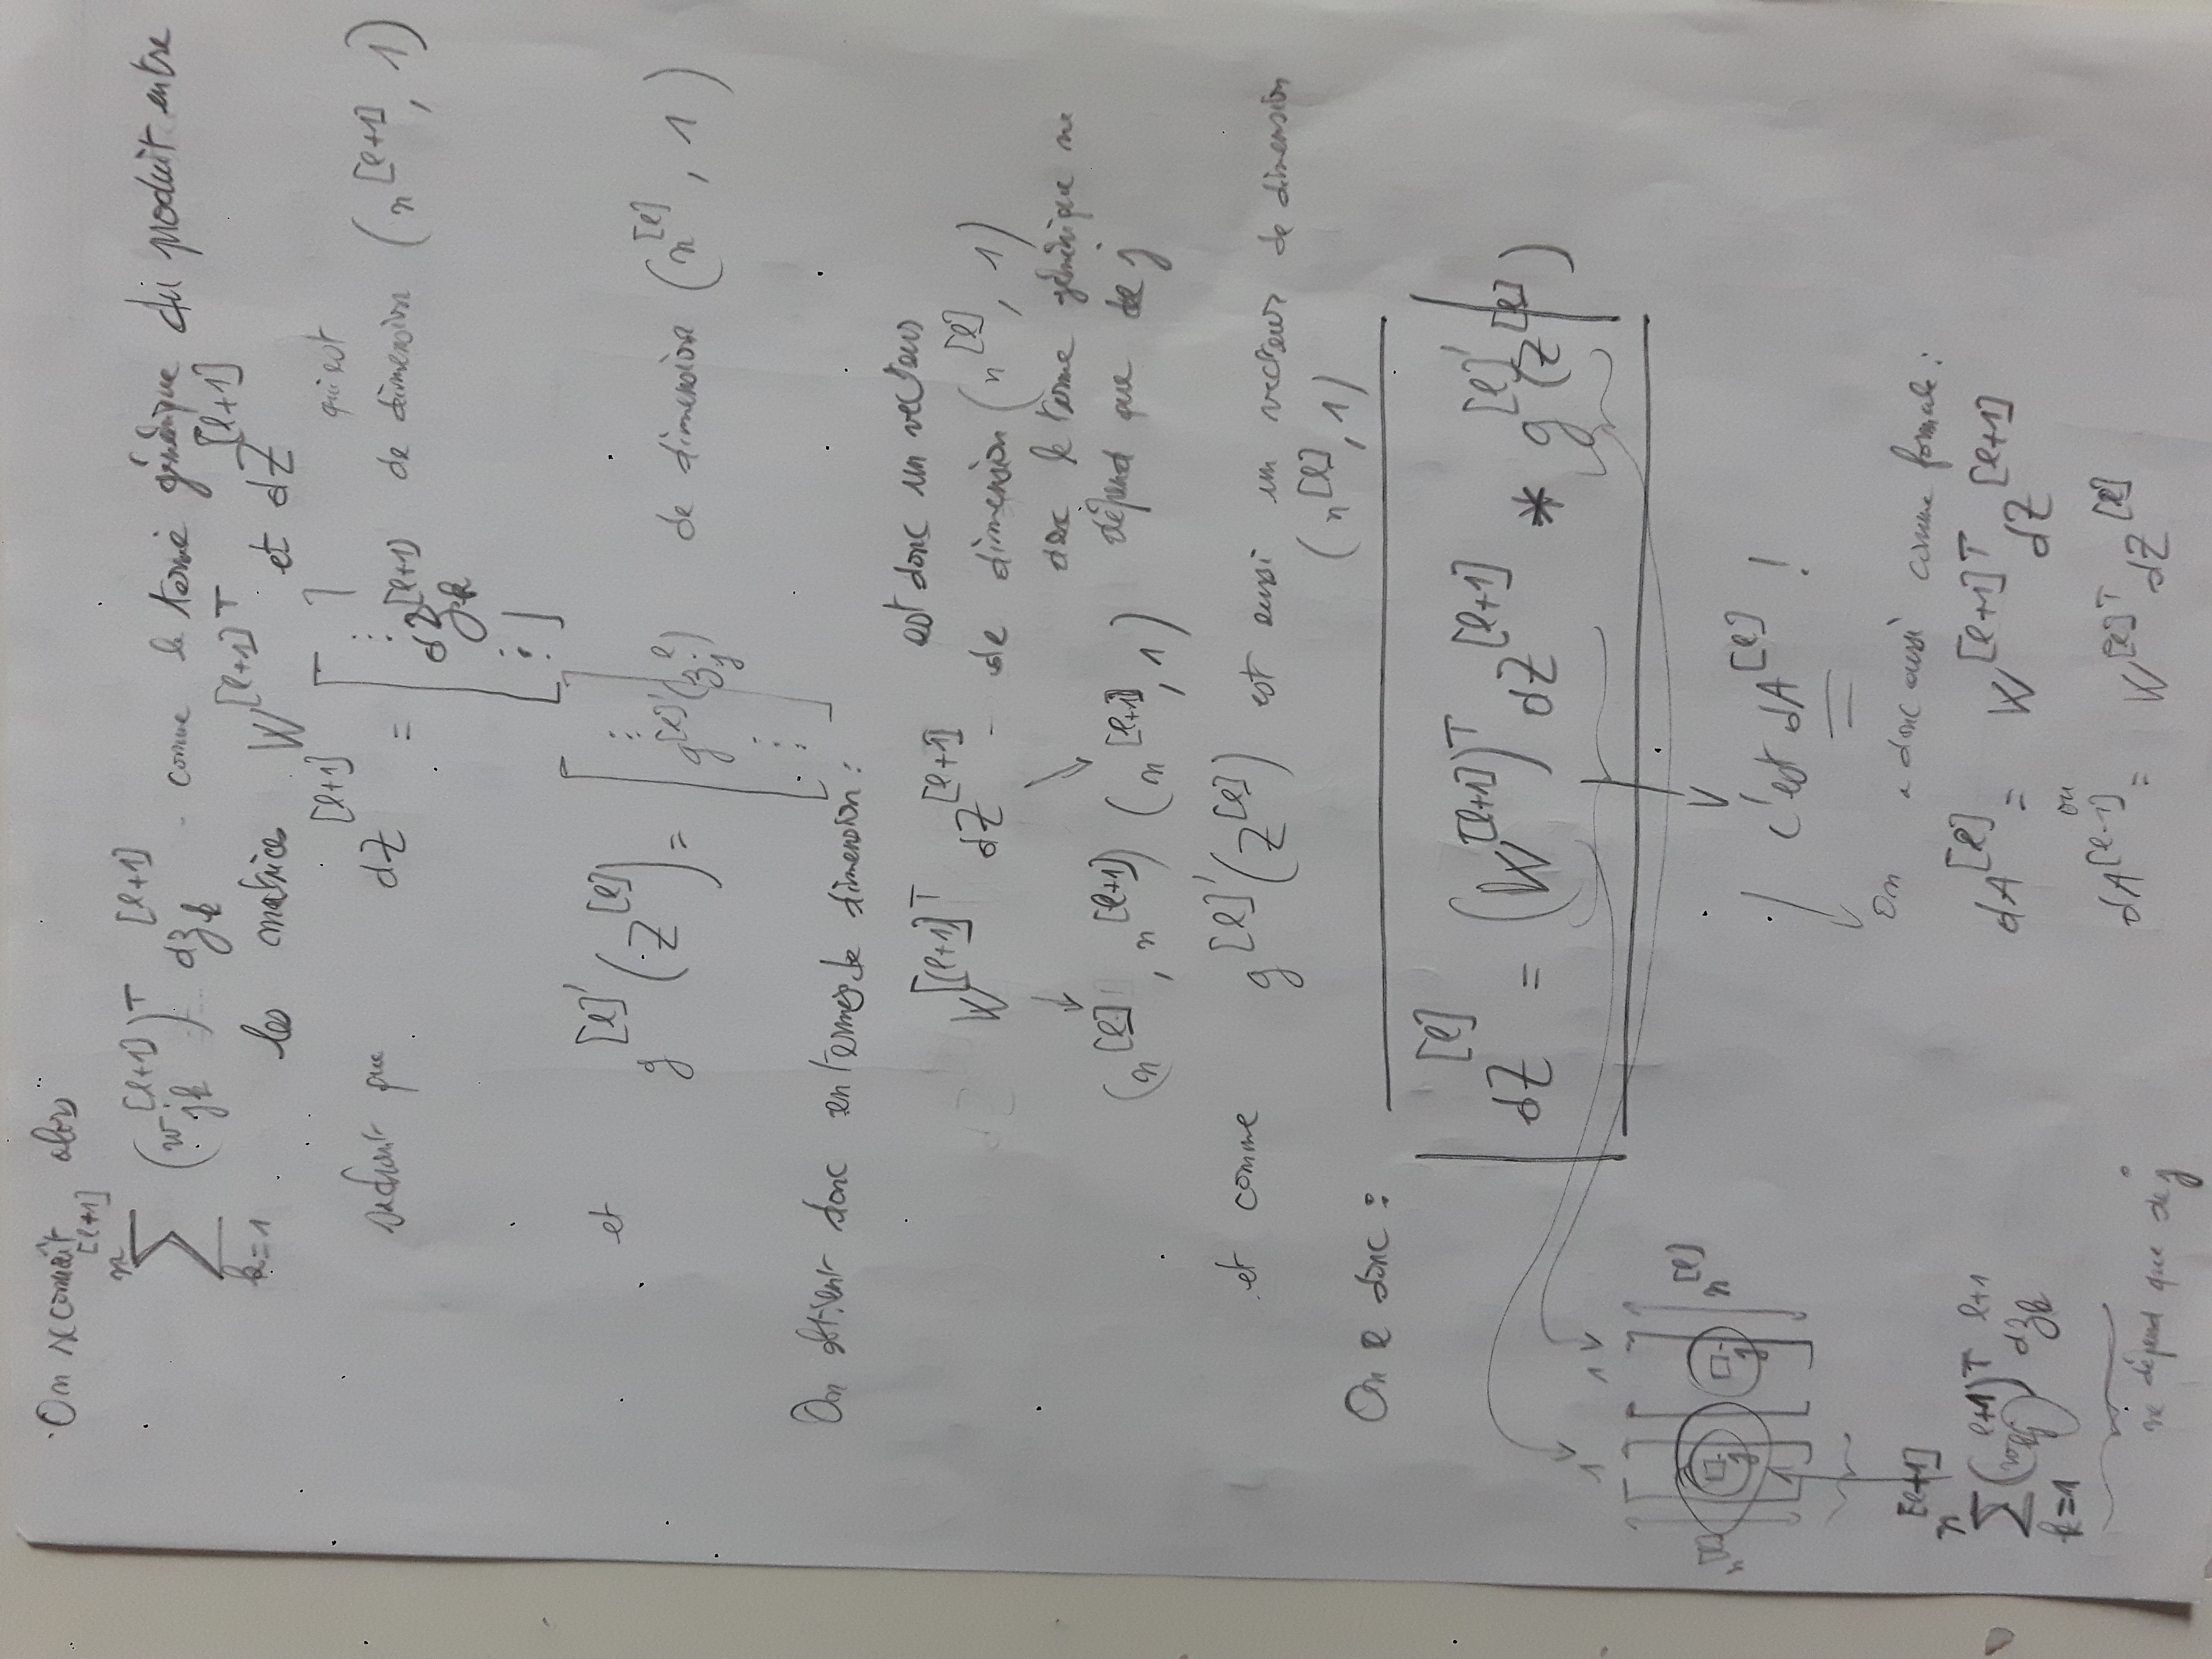 On reconnaît alors
∑_{k=1}^{n^{[l+1]}} (w_{jk}^{[l+1]})^T dz_k^{[l+1]} comme le terme générique du produit entre
les matrices W^{[l+1]T} et dZ^{[l+1]}
sachant que dZ^{[l+1]} = [ ⋮ dz_k^{[l+1]} ⋮ ] qui est de dimension (n^{[l+1]}, 1)
et g^{[l]'}(Z^{[l]}) = [ ⋮ g^{[l]'}(z_j^l) ⋮ ] de dimension (n^{[l]}, 1)
On obtient donc en termes de dimension :
W^{[l+1]T} dZ^{[l+1]} est donc un vecteur
de dimension (n^{[l]}, 1)
donc le terme générique ne
dépend que de j
(n^{[l]}, n^{[l+1]}) (n^{[l+1]}, 1)
et comme g^{[l]'}(Z^{[l]}) est aussi un vecteur de dimension
(n^{[l]}, 1)
On a donc :
dZ^{[l]} = (W^{[l+1]})^T dZ^{[l+1]} * g^{[l]'}(Z^{[l]})
1 1
n^{[l]} [ □_j ] [ □_j ] n^{[l]}
c'est dA^{[l]} !
On a donc aussi comme formule :
dA^{[l]} = W^{[l+1]T} dZ^{[l+1]}
ou
dA^{[l-1]} = W^{[l]T} dZ^{[l]}
∑_{k=1}^{n^{[l+1]}} (w_{kj}^{l+1})^T dz_k^{l+1}
ne dépend que de j